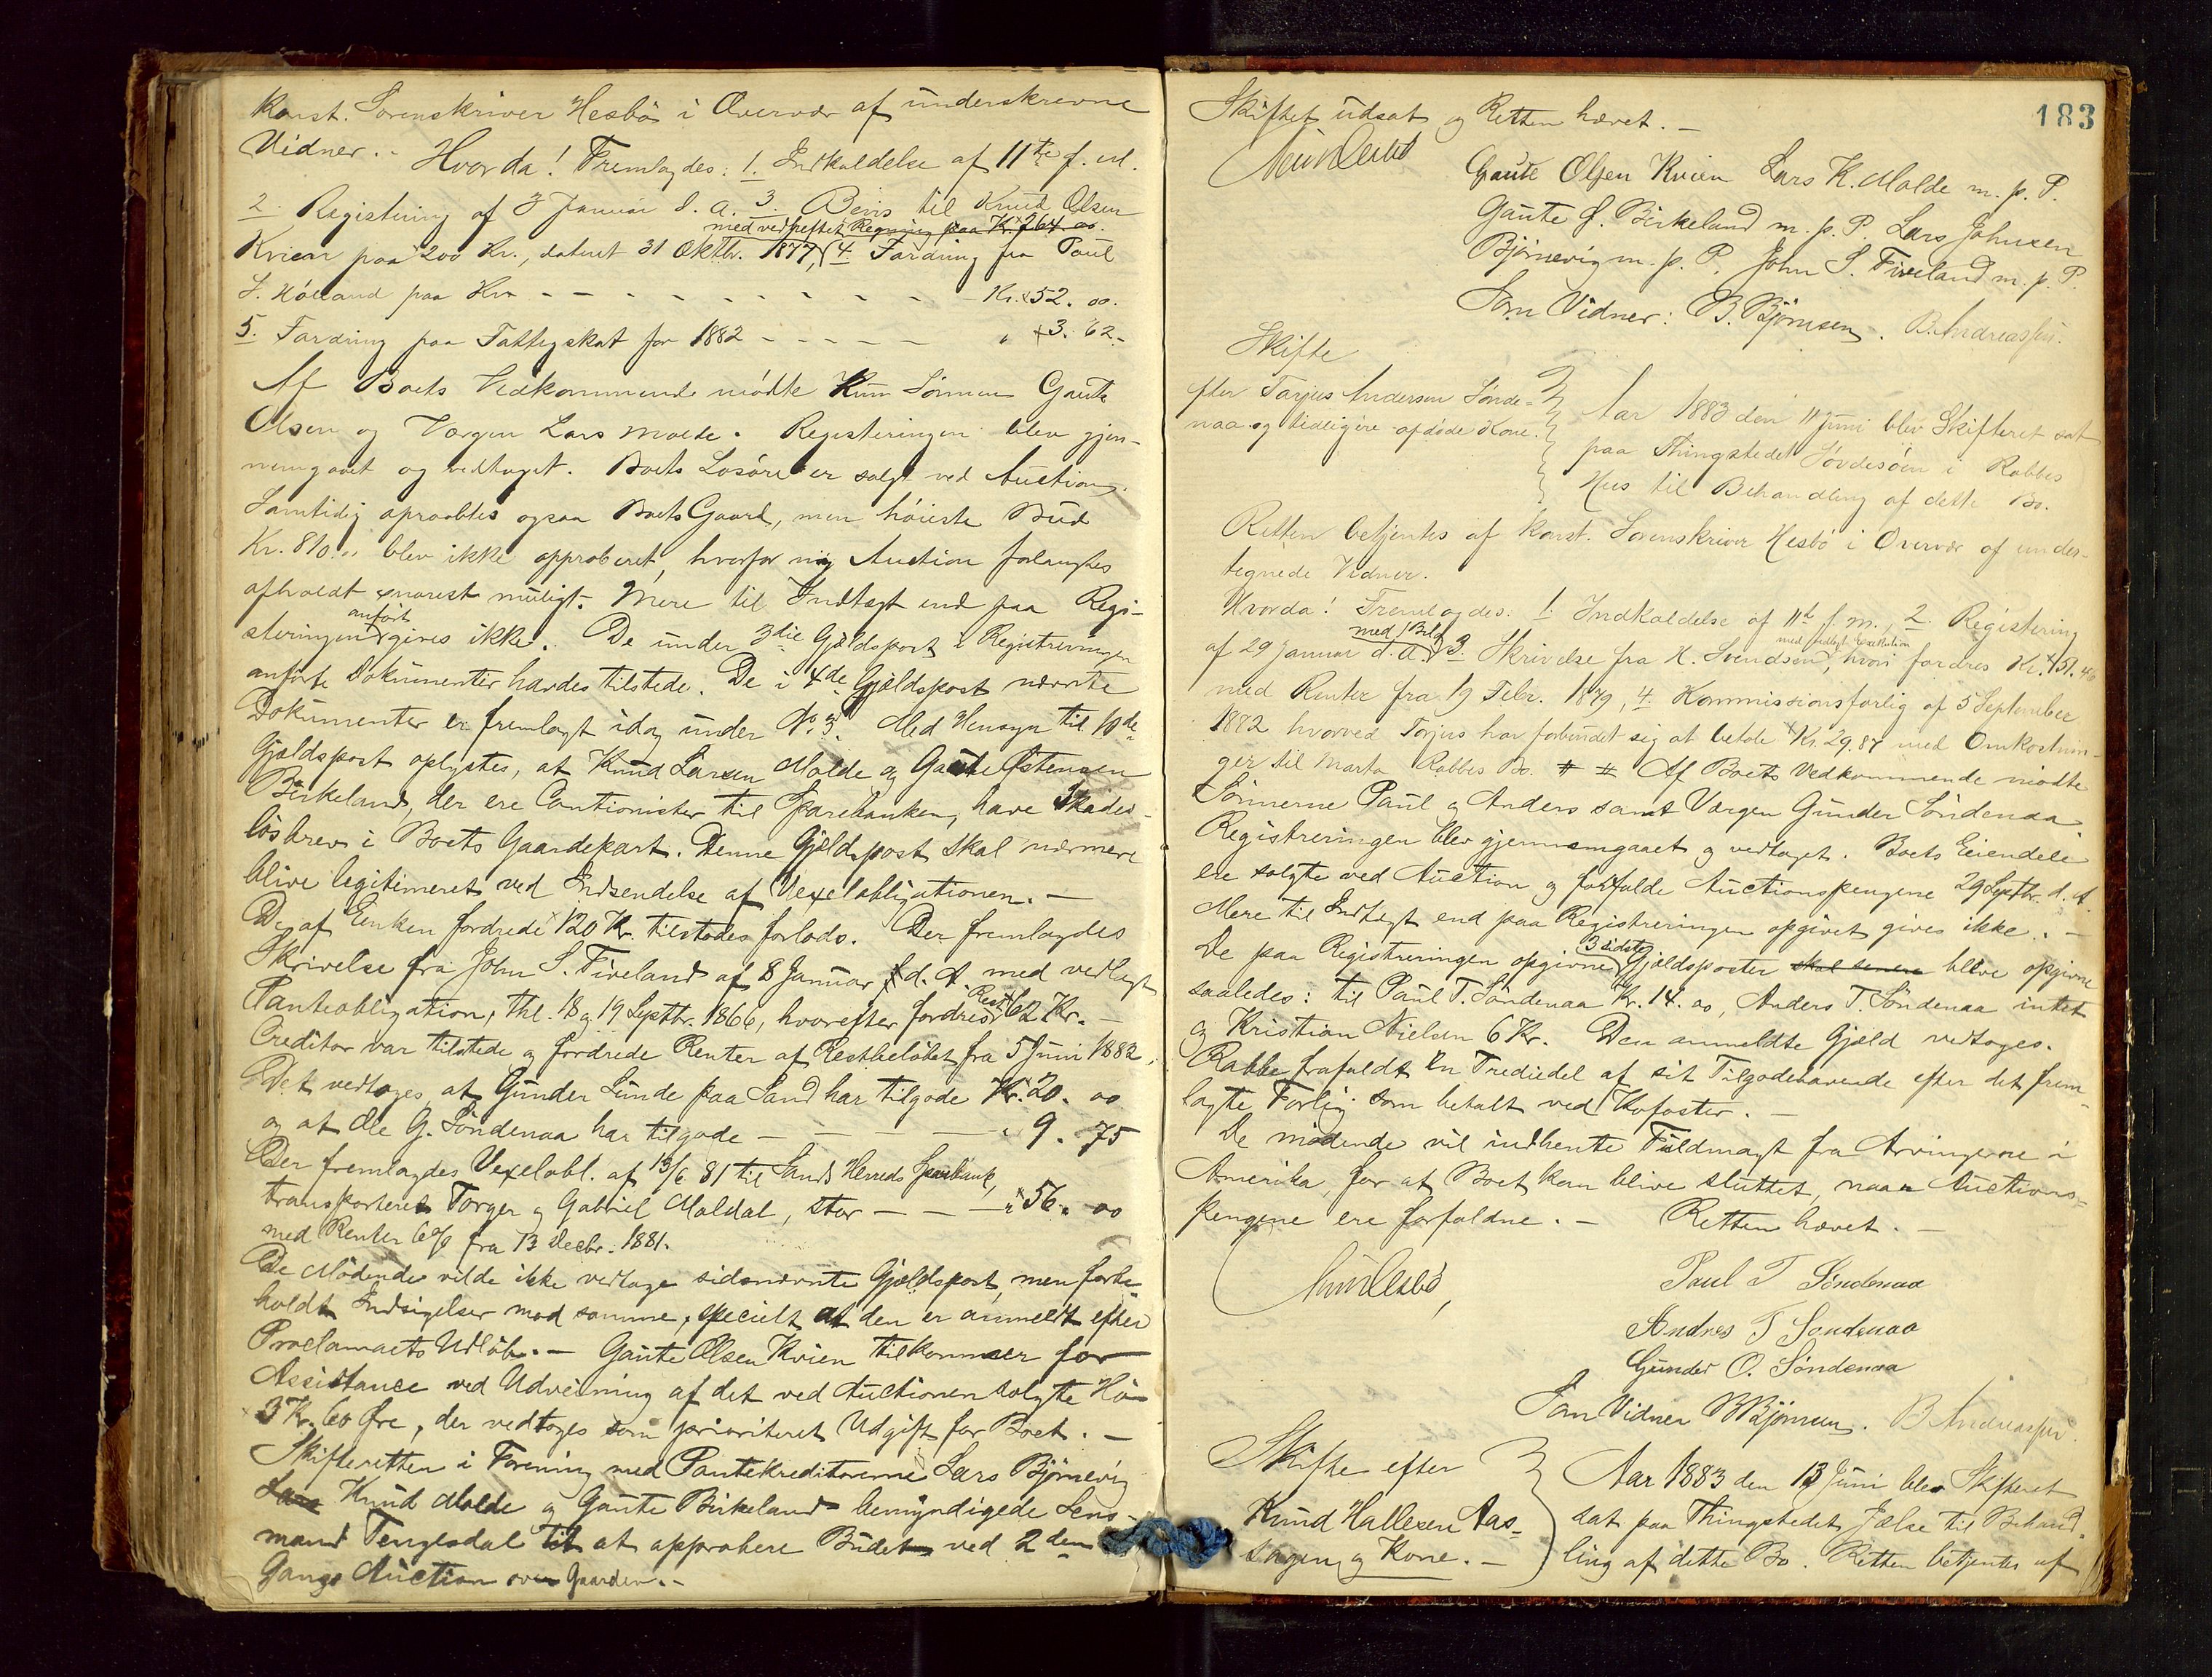 Konst. Sorenskriver Hesbö i Overvær af underskrevne
Vidner. - Hvorda! Fremlagdes: 1. Indkaldelse af 11te f. M.
2. Registring af 3 Januar d. A. 3. Bevis til Knud Olsen
med vedheftet Regning paa Kr. 264.00.
Kvien paa 200 Kr., dateret 31 Oktbr. 1877, 4. Fordring fra Paul
J. Hölland paa Kr - - - - - - - - Kr. 52. 00.
5. Fordring paa Fattigskat for 1882 - - - - - " 3. 62.
Af Boets Vedkommende mödte Kun Sönnen Gaute
Olsen ogVærgen Lars Molde. Registeringen blev gjen-
nemgaaet og vedtaget. Boets Lösöre er solgt ved Auction.
Samtidig opraabtes ogsaa Boets Gaard, men höieste Bud
Kr. 810.00 blev ikke approberet, hvorfor ny Auction forlanges
afholdt snarest muligt. Mere til Indtægt end paa Regi-
steringen anfört gives ikke. De under 3die Gjældspost i Registreringen
anförte Dokumenter havdes tilstede. De i 4de Gjældspost nævnte
Dokumenter er fremlagt idag under No. 3. Med Hensyn til 10de
Gjældspost oplystes, at Knud Larsen Molde og Gaute Östensen
Birkeland, der ere Cautionister til Sparebanken, have Skades-
lösbrev i Boets Gaardepart. Denne Gjældspost skal nærmere
blive legitimeret ved Indsendelse af Vexelobligationen. -
De af Enken fordrede 120 Kr. tilstodes forlods. Der fremlagdes
Skrivelse fra John S. Fiveland af 8 Januar d. A. med vedlagt
Panteobligation, thl. 18 og 19 Septbr. 1866, hvorefter fordres Rest 62 Kr. -
Creditor var tilstede og fordrede Renter af Restbelöbet fra 5 Juni 1882.
Det vedtoges, at Gunder Lunde paa Sand har tilgode Kr. 20. 00
og at Ole G. Söndenaa har tilgode - - - - " 9. 75
Der fremlagdes Vexelobl. af 13/6 81 til Sands Herreds Sparebank,
transporteret Torger og Gabriel Moldal, stor - - - " 56. 00
med Renter 6% fra 13 Decbr. 1881.
De Mödende vilde ikke vedtage sidsnævnte Gjældspost, men forbe-
holdt Indsigelser mod samme, specielt at den er anmeldt efter
Proclamaets Udlöb. - Gaute Olsen Kvien tilkommer for
Assistance ved Udveining af det ved Auctionen solgte Hö
3 Kr. 60 Öre, der vedtoges som prioriteret Udgift for Boet. -
Skifteretten i Forening med Pantekreditorerne Lars Björnevig
Lars Knud Molde og Gaute Birkeland bemyndigede Lens-
mand Tengesdal til at approbere Budet ved 2den
Gangs Auction over Gaarden. -
183
Skiftet udsat og Retten hævet. -
Gaute Olsen Kvien Lars K. Molde m. p. P.
Gaute Ö. Birkeland m. p. P. Lars Johnsen
Björnevig m. p. P. John S. Fiveland m. p. P.
Som Vidner: B. Björnsen. B. Andreassen.
Skifte
efter Tarjus Andersen Sönde-
naa og tidligere afdöde Kone.
Aar 1883 den 11 Juni blev Skifteret sat
paa Thingstedet Sövdesöen i Rabbes
Hus til Behandling af dette Bo.
Retten betjentes af konst. Sorenskriver Hesbö i Overvær af under-
tegnede Vidner.
Hvorda! Fremlagdes: 1. Indkaldelse af 11te f. M., 2. Registering
af 29 Januar d. A. med Bilag 3. Skrivelse fra H. Svendsen, hvori fordres Kr. 151.46
med Renter fra 19 Febr. 1879, 4. Kommissionsforlig af 5 September
1882 hvorved Torjus har forbundet sig at betale Kr. 29.87 med Omkostnin-
ger til Marta Rabbes Bo. # # Af Boets Vedkommende mödte
Sönnerne Paul og Anders samt Værgen Gunder Söndenaa.
Registreringen blev gjennemgaaet og vedtaget. Boets Eiendele
ere solgte ved Auction og forfalde Auctionspengene 29 Septbr. d. A.
Mere til Indtægt end paa Registreringen opgivet gives ikke. -
De paa Registreringen opgivne 3 sidste Gjældsposter skal senere blive opgivne
saaledes: til Paul T. Söndenaa Kr. 14. 00, Anders T. Söndenaa intet
og Kristian Nielsen 6 Kr. Den anmeldte Gjæld vedtoges.
Rabbe frafaldt en Trediedel af sit Tilgodehavende efter det frem-
lagte Forlig som betalt ved Kofoster. -
De mödende vil indhente Fuldmagt fra Arvingerne i
Amerika, for at Boet kan blive sluttet, naar Auctions-
pengene ere forfaldne. - Retten hævet. -
Paul T Söndenaa
Andres T Sondenaa
Gunder O. Söndenaa
Som Vidner B Björnsen. B Andreassen.
Skifte efter
Knud Hallesen Aas-
sagen og Kone. -
Aar 1883 den 13 Juni blev Skifteret
sat paa Thingstedet Jælse til Behand-
ling af dette Bo. Retten betjentes af